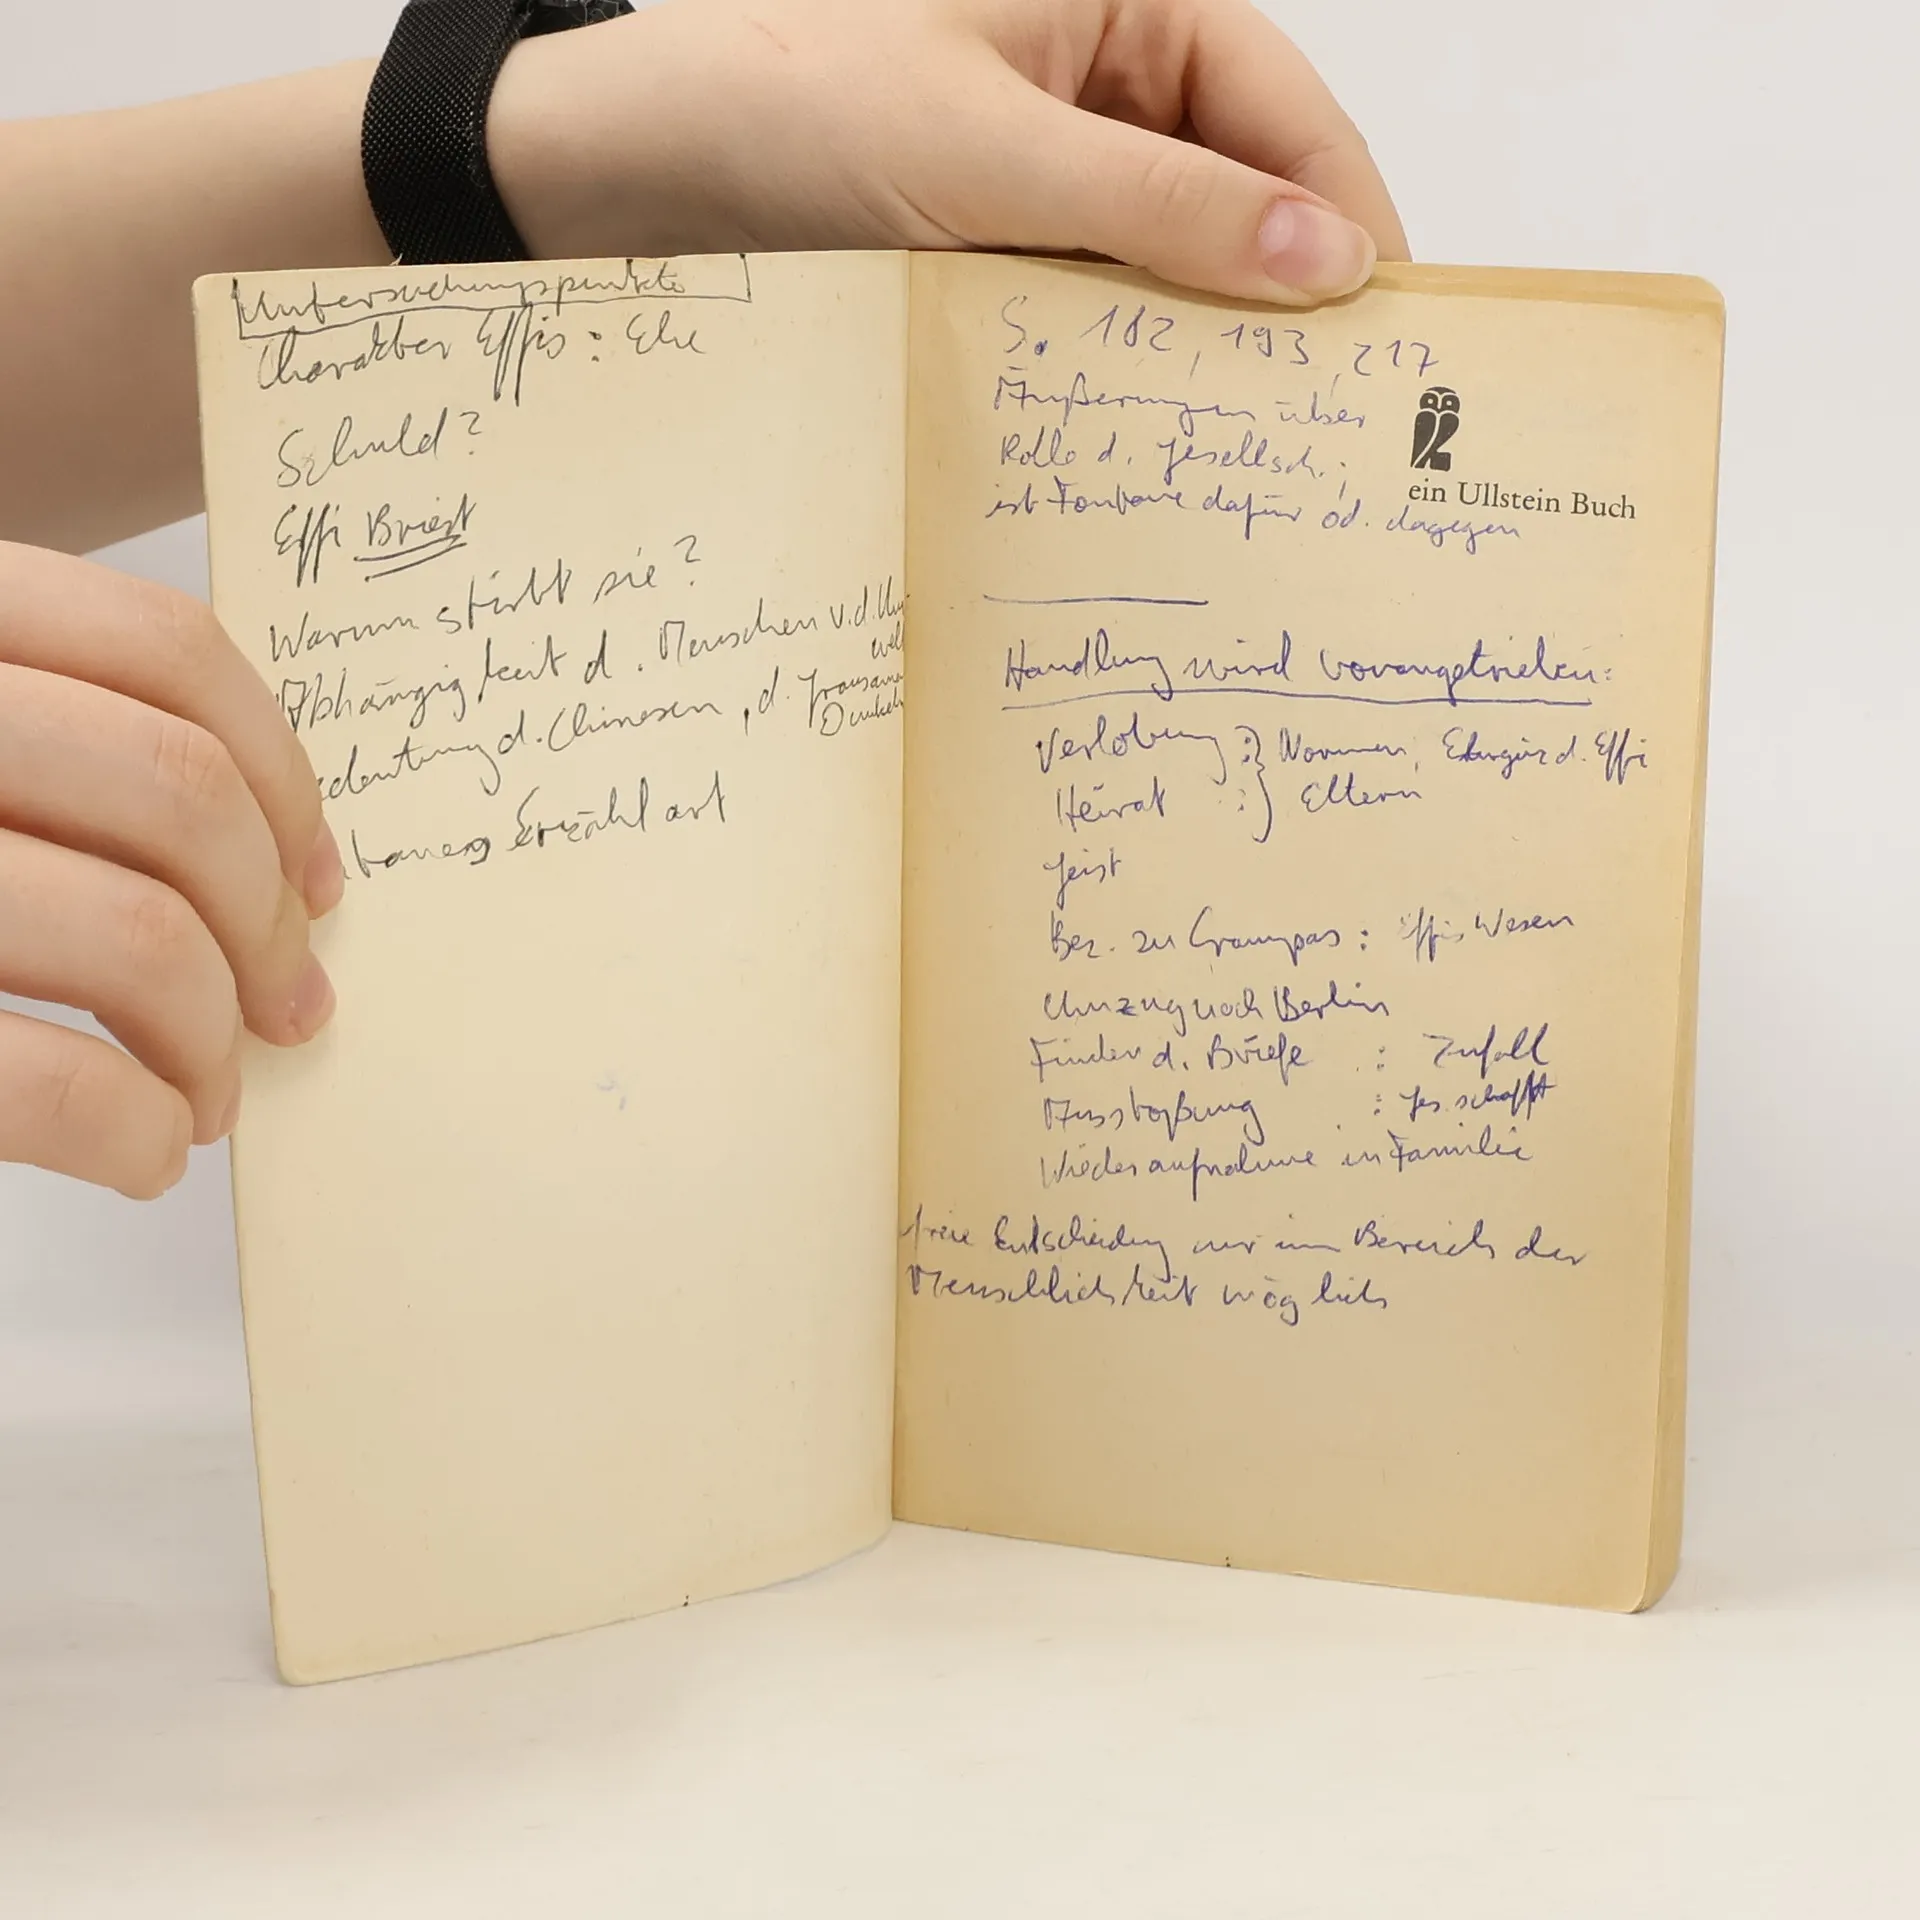 Untersuchungspunkte
Charakter Effis: Ehe
Schuld?
Effi Briest
Warum stirbt sie?
Abhängigkeit d. Menschen v. d. Um
welt
edeutung d. Chinesen, d. grausamen
Dunkeln
ntanes Erzählart
S. 182, 193, 217
Äußerungen über
Rolle d. Gesellsch.;
ist Fontane dafür od. dagegen
ein Ullstein Buch
Handlung wird vorangetrieben:
Verlobung :} Normen, Ehrgeiz d. Effi
Heirat :} Eltern
Geist
Bez. zu Crampas: Effis Wesen
Umzug nach Berlin
Finden d. Briefe : Zufall
Ausstoßung : Ges.schaft
Wiederaufnahme in Familie
freie Entscheidung nur im Bereich der
Menschlichkeit möglich